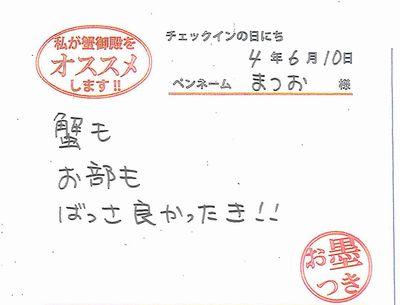 私が蟹御殿を
オススメ
します!!
チェックインの日にち
4年6月10日
ペンネーム まつお 様
蟹も
お部も
ばっさ良かったき!!
お墨
つき